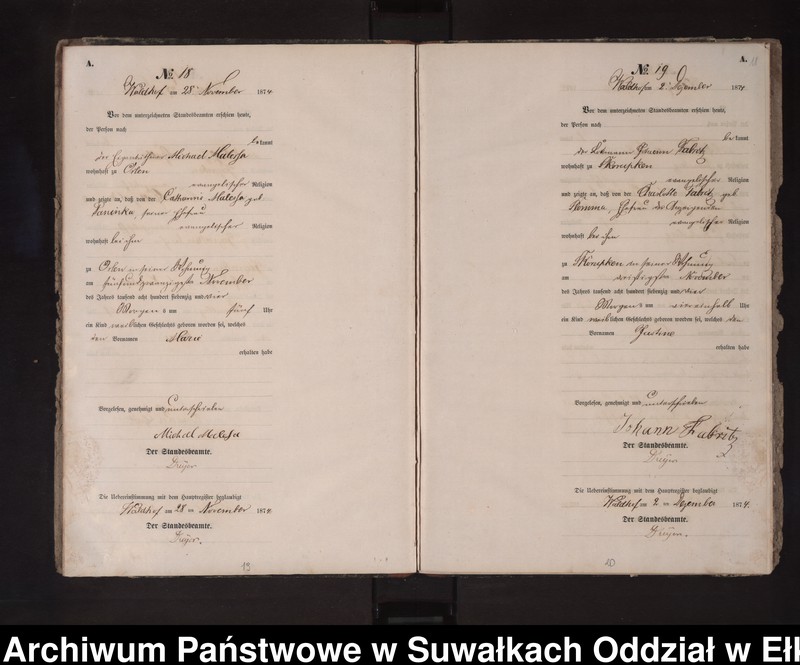 A.
No. 18
Waldhof am 28 November 1874
Vor dem unterzeichneten Standesbeamten erschien heute,
der Person nach
be kannt
der Eigenkäthner Michael
wohnhaft zu
evangelischer Religion
und zeigte an, daß von der Catharine geb
seiner Ehefrau
evangelischer Religion
wohnhaft bei ihm
zu in seiner Wohnung
am fünfundzwanzigsten November
des Jahres tausend acht hundert siebenzig und vier
Morgens um fünf Uhr
ein Kind weiblichen Geschlechts geboren worden sei, welches
den Vornamen Marie
erhalten habe
Vorgelesen, genehmigt und unterschrieben
Michael
Der Standesbeamte.
Die Uebereinstimmung mit dem Hauptregister beglaubigt
Waldhof am 28 ten November 1874.
Der Standesbeamte.
19
A.
No. 19
Waldhof am 2 Dezember 1874
Vor dem unterzeichneten Standesbeamten erschien heute,
der Person nach
be kannt
der Losmann Johann
wohnhaft zu
evangelischer Religion
und zeigte an, daß von der Charlotte geb
Ehefrau des Anzeigenden
evangelischer Religion
wohnhaft bei ihm
zu in seiner Wohnung
am dreißigsten November
des Jahres tausend acht hundert siebenzig und vier
Morgens um viereinhalb Uhr
ein Kind weiblichen Geschlechts geboren worden sei, welches den
Vornamen Justine
erhalten habe
Vorgelesen, genehmigt und unterschrieben
Johann
Der Standesbeamte.
Die Uebereinstimmung mit dem Hauptregister beglaubigt
Waldhof am 2 ten Dezember 1874.
Der Standesbeamte.
20
Archiwum Państwowe w Suwałkach Oddział w Ełk